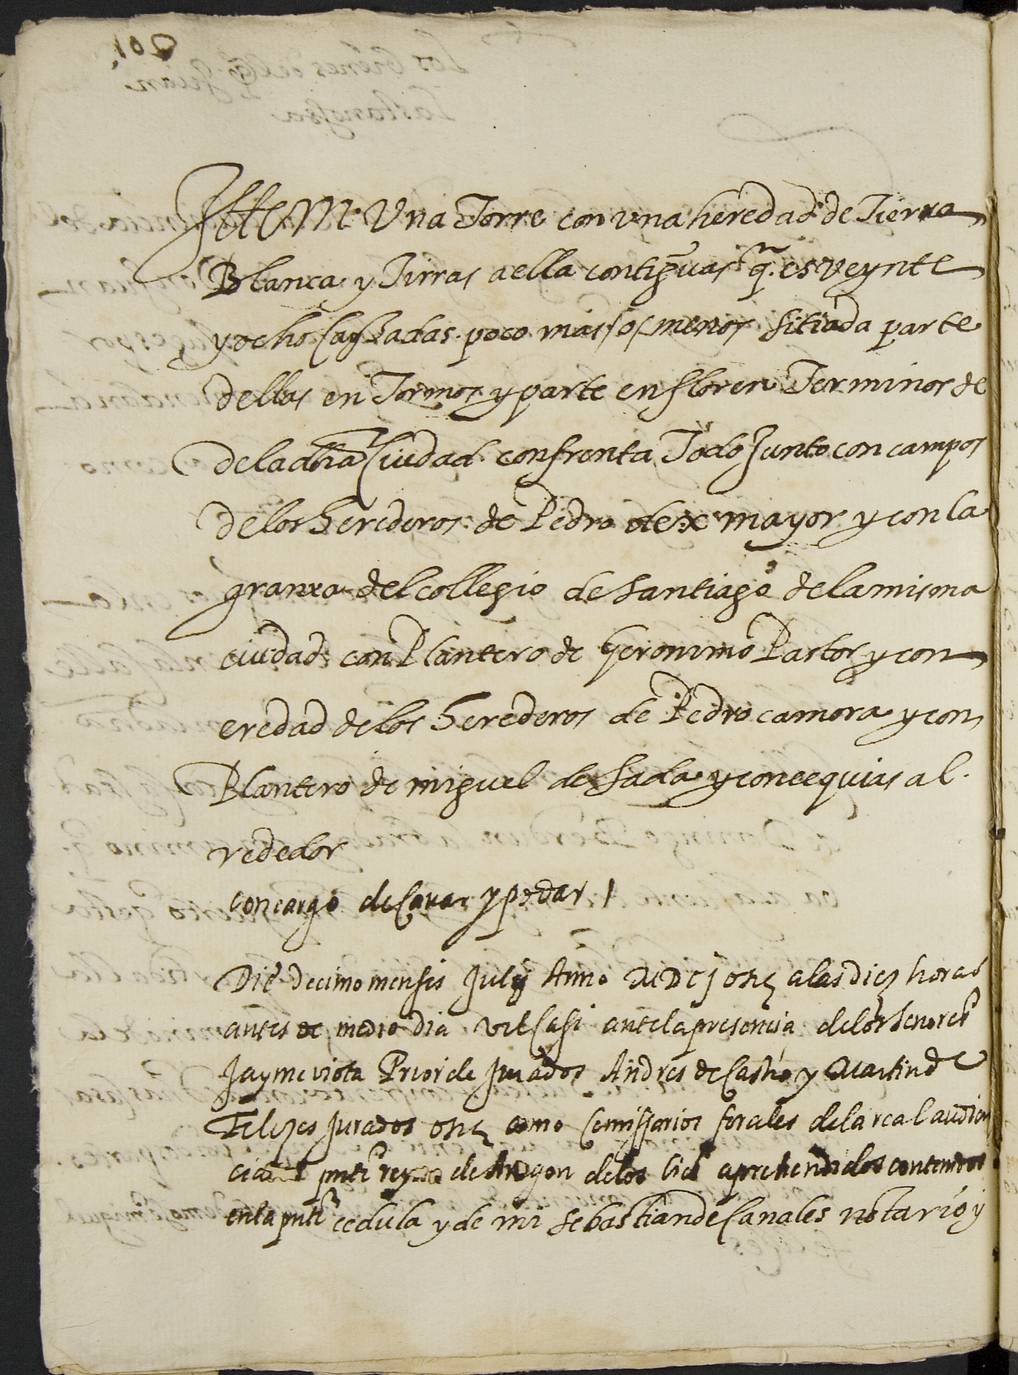 Ittem Una Torre con una heredad de Tierra
Blanca y Tirras a ella contiguas q̃ es veynte
y ocho Cayzadas poco mas o menos sitiada parte
dellas en Tormos y parte en floren Terminos de
de la dha Ciudad confrenta Todo Junto con campos
de los herederos de Pedro mayor y con la
granxa del collegio de Santiago de la misma
ciudad con Plantero de Geronimo Pastor y con
eredad de los herederos de Pedro camora y con
Plantero de miguel de Sada y con cequias al
rededor
con cargo de Cavar y podar
Die decimo mensis Julij Anno MDCj osce a las diez horas
antes de medio dia vel casi ante la presencia de los senores
Jayme viota Prior de Jurados Andres de Castro y Martin de
Felizes Jurados osce como Comissarios forales de la real audien
cia del pnte reyno de Aragon de los bienes aprehendidos contenidos
en la pnte cedula y de mi Sebastian de Canales notario y